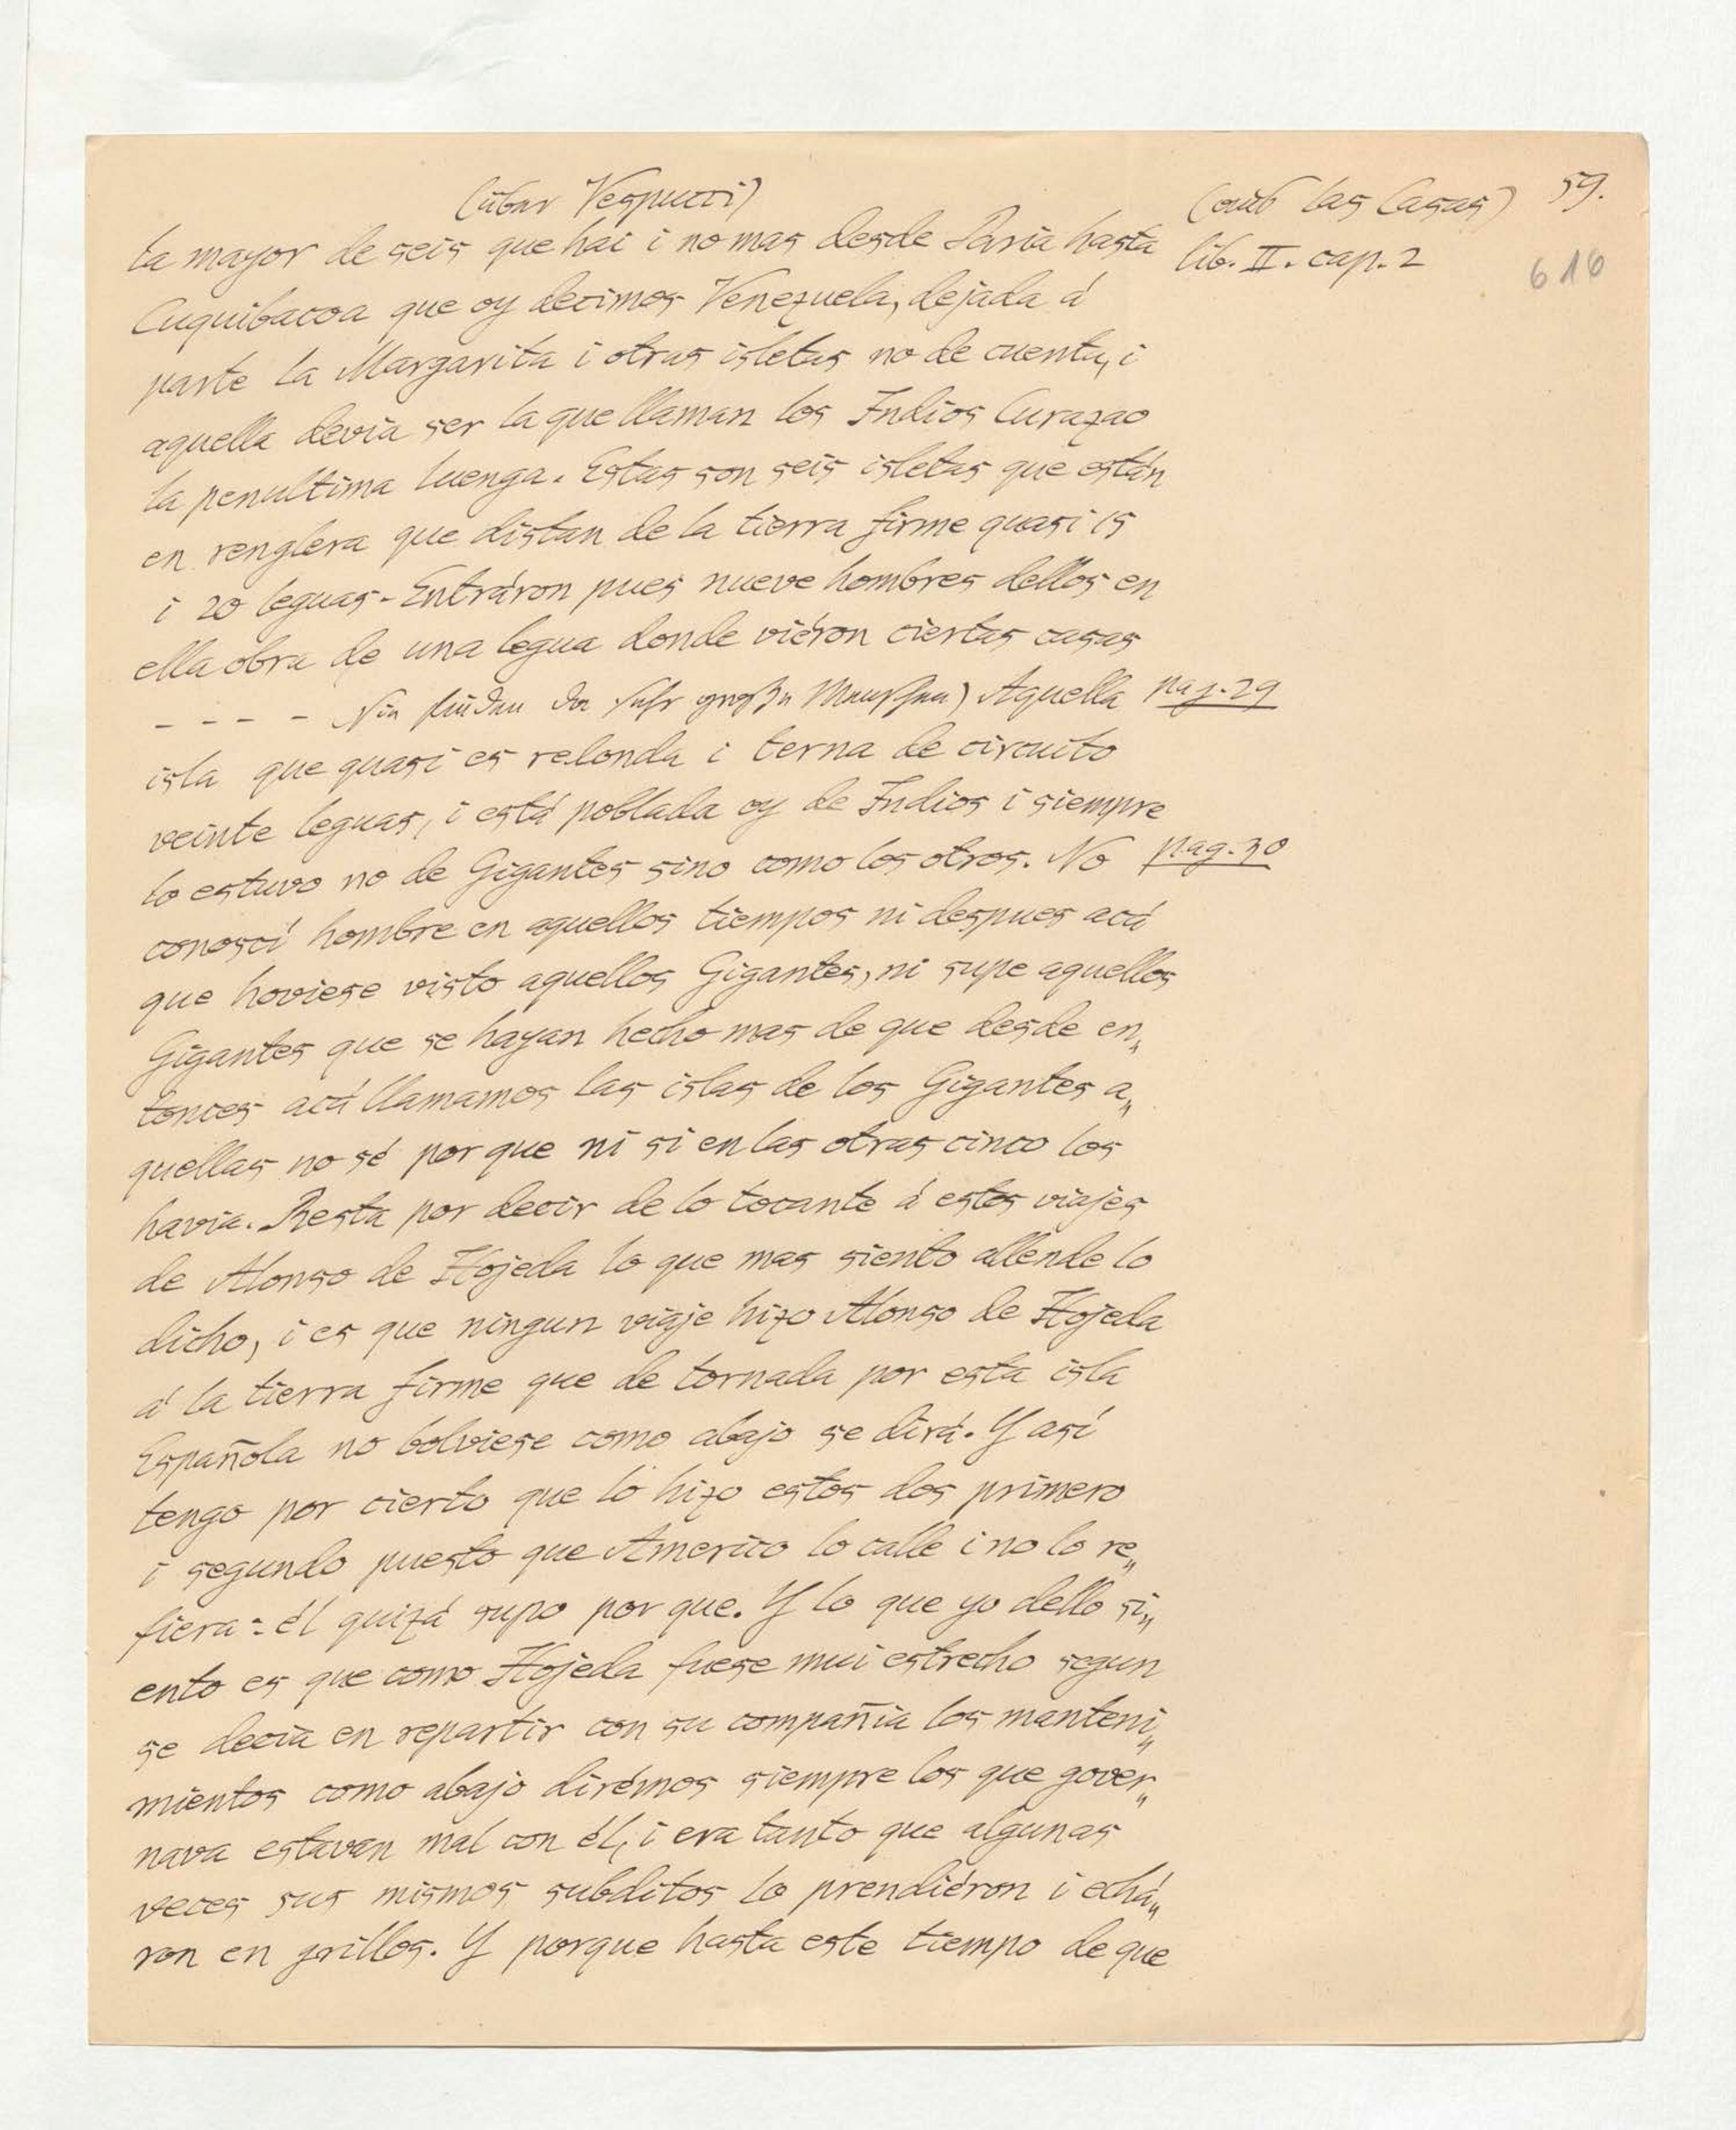 (über Vespucci)
(aus las Casas) 59.
lib. II. cap. 2
616
la mayor de seis que hai i no mas desde Paria hasta
Cuquibacoa que oy decimos Venezuela, dejada á
parte la Margarita i otras isletas no de cuenta, i
aquella devia ser la que llaman los Indios Curazao
la penultima luenga. Estas son seis isletas que están
en renglera que distan de la tierra firme quasi 15
i 20 leguas - Entráron pues nueve hombres dellos en
ella obra de una legua donde viéron ciertas casas
- - - - Sie finden da sehr große Menschen) Aquella pag. 29
isla que quasi es redonda i terna de circuito
veinte leguas, i está poblada oy de Indios i siempre
lo estuvo no de Gigantes sino como los otros. No pag. 30
conoscí hombre en aquellos tiempos ni despues acá
que hoviese visto aquellos Gigantes, ni supe aquellos
Gigantes que se hayan hecho mas de que desde en„
tonces acá llamamos las islas de los Gigantes a„
quellas no sé por que ni si en las otras cinco los
havia. Resta por decir de lo tocante á estos viajes
de Alonso de Hojeda lo que mas siento allende lo
dicho, i es que ningun viaje hizo Alonso de Hojeda
á la tierra firme que de tornada por esta isla
Española no bolviese como abajo se dirá. Y así
tengo por cierto que lo hizo estos dos primero
i segundo puesto que Americo lo calle i no lo re„
fiera: él quizá supo por que. Y lo que yo dello si„
ento es que como Hojeda fuese mui estrecho segun
se decia en repartir con su compañia los manteni„
mientos como abajo dirémos siempre los que gover„
nava estavan mal con él, i era tanto que algunas
veces sus mismos subditos lo prendiéron i echá„
ron en grillos. Y porque hasta este tiempo de que